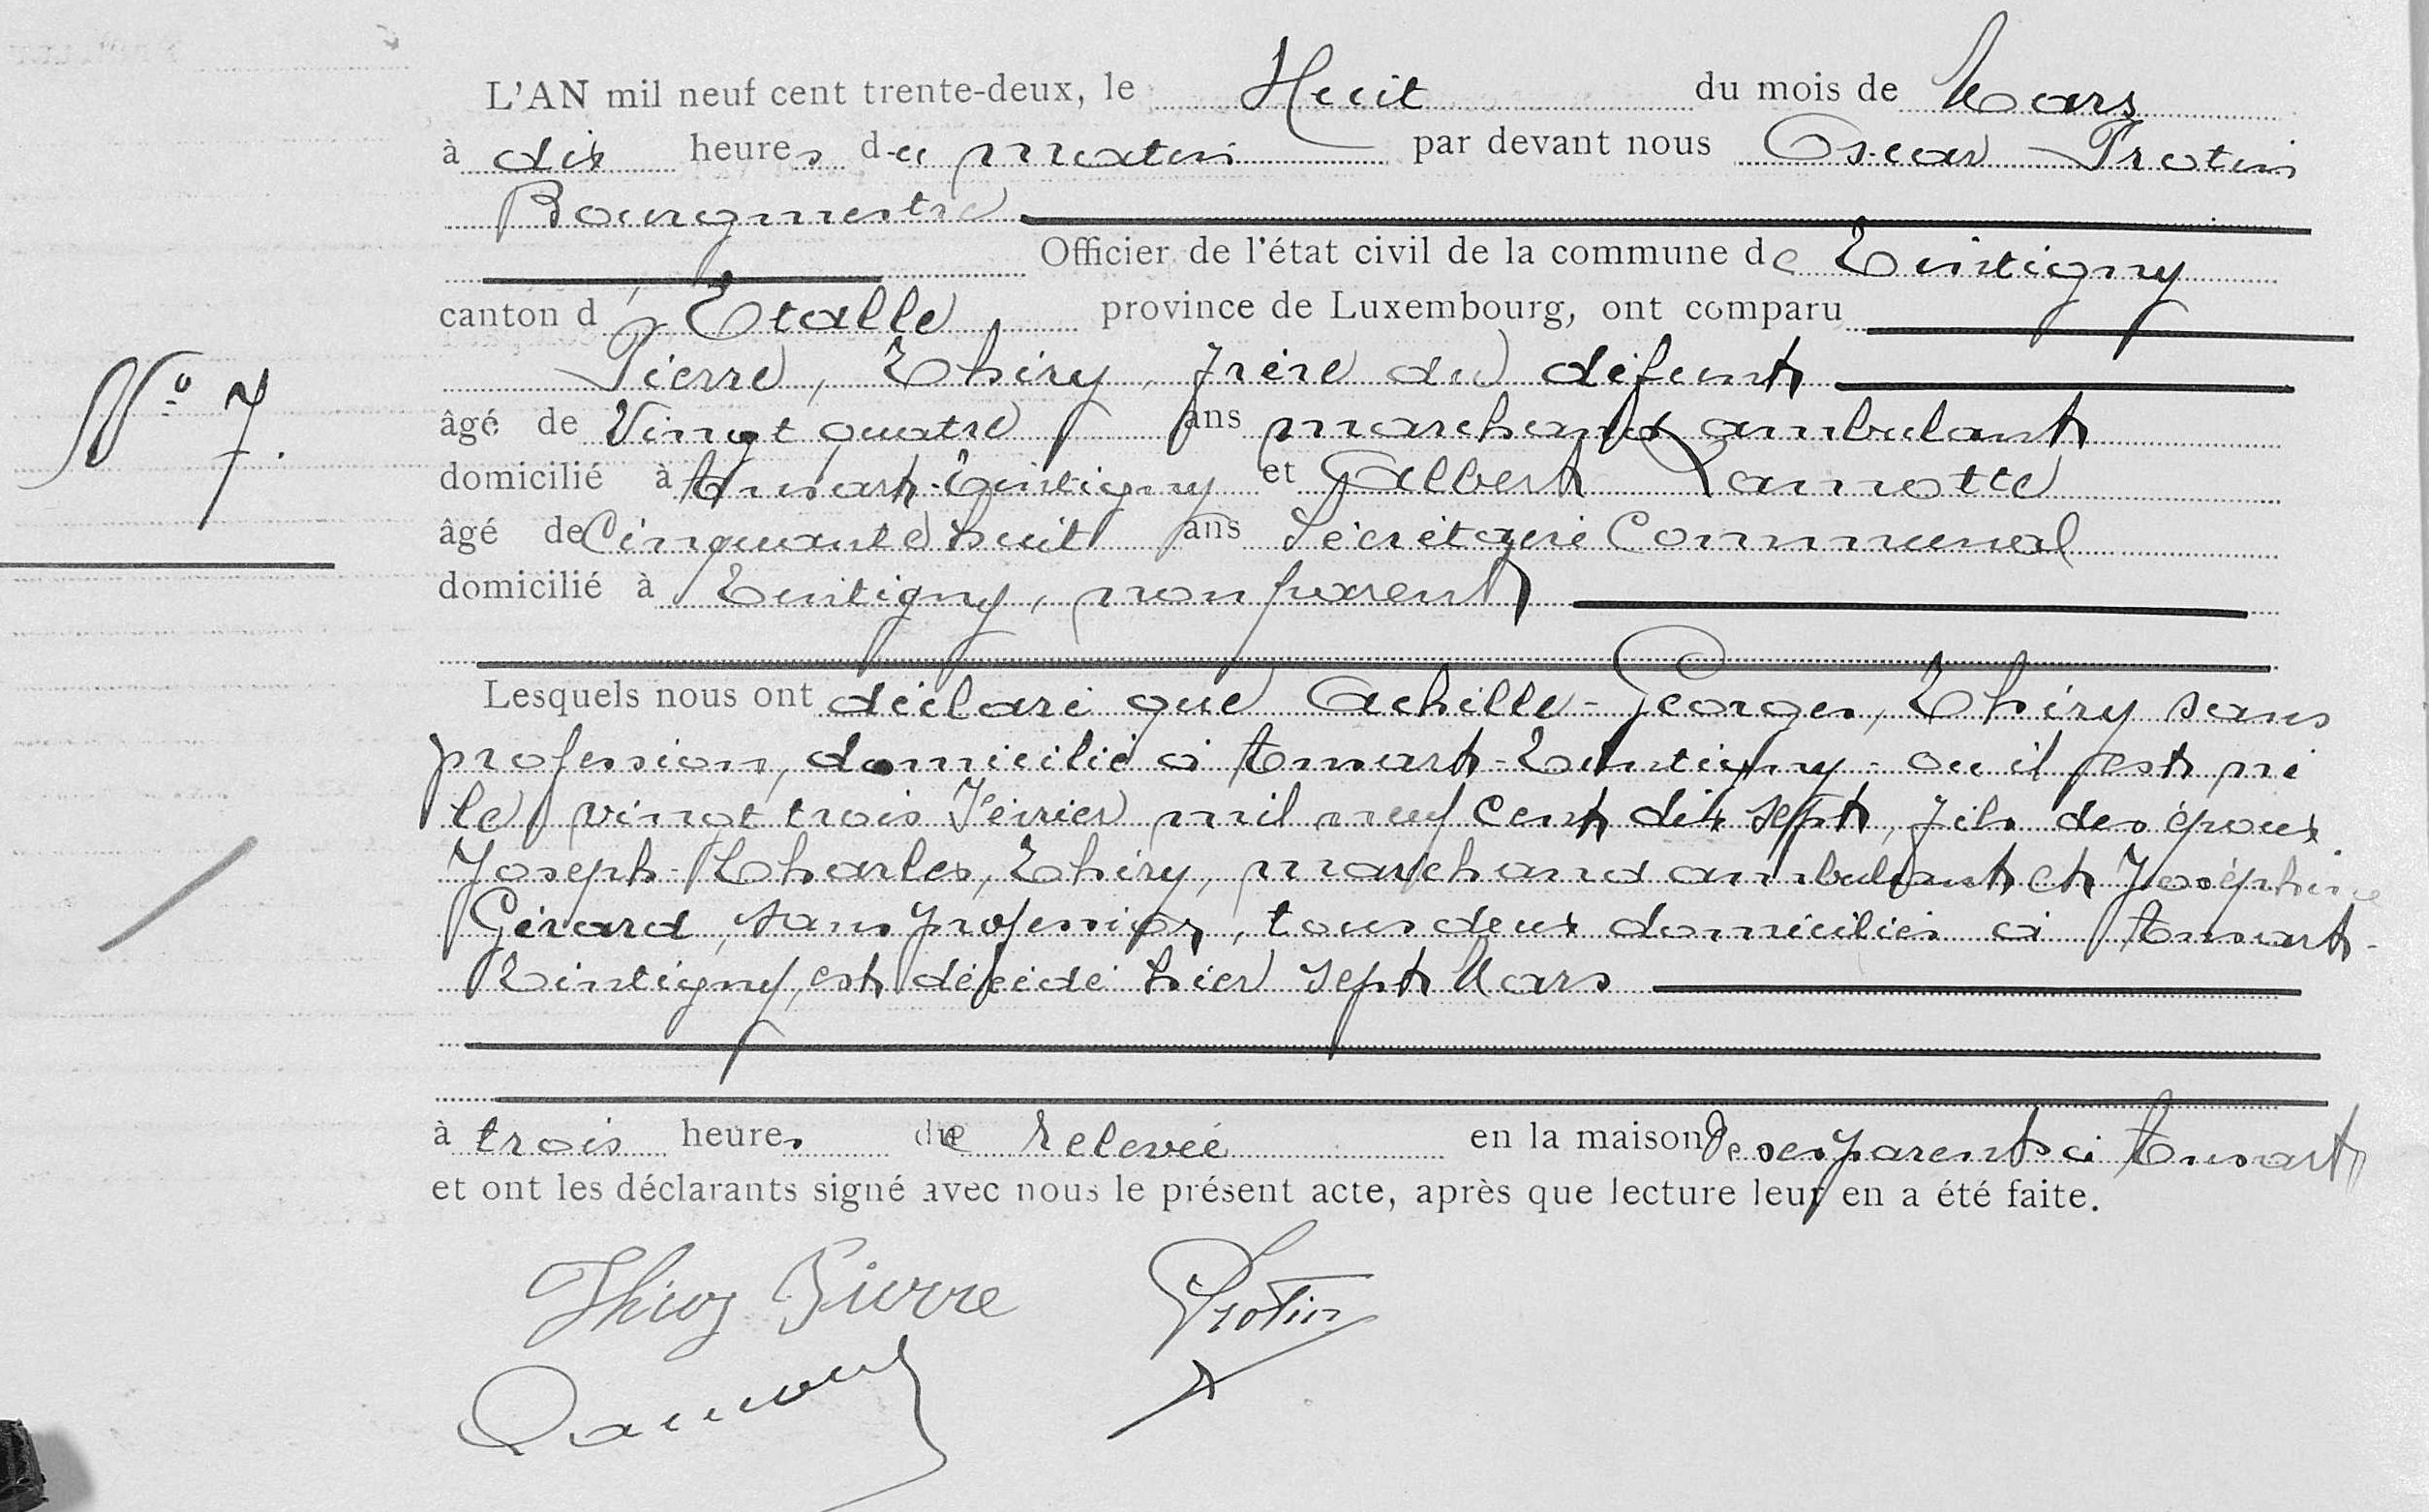 L'AN mil neuf cent trente-deux, le Huit du mois de Mars
à dix heures du matin par devant nous Oscar Protin
Bourgmestre
Officier de l'état civil de la commune de Tintigny
canton d'Etalle province de Luxembourg, ont comparu
Pierre, Thiry, frère du défunt
N° 7.
âgé de Vingt quatre ans marchand ambulant
domicilié à Ansart-Tintigny et Albert Lamotte
âgé de Cinquante huit ans Secrétaire Communal
domicilié à Tintigny, non parent
Lesquels nous ont déclaré que Achille-Georges, Thiry sans
profession, domicilié à Ansart-Tintigny - où il est né
le vingt trois Février mil neuf cent dix sept, fils des époux
Joseph-Charles, Thiry, marchand ambulant et Joséphine
Gérard, sans profession, tous deux domiciliés à Ansart-
Tintigny, est décédé hier sept Mars
à trois heures de relevée en la maison de ses parents à Ansart
et ont les déclarants signé avec nous le présent acte, après que lecture leur en a été faite.
Thiry Pierre Protin